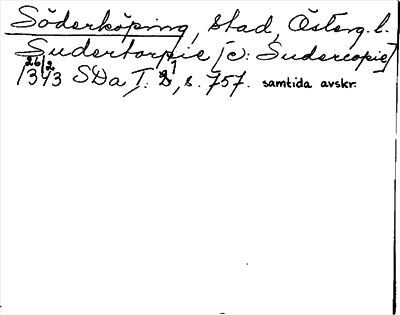 Söderköping, stad, Österg. l.
Sudertorpie [ɔ: Sudercopie]
26/2
1343 SDa I: 1, s. 757. samtida avskr.